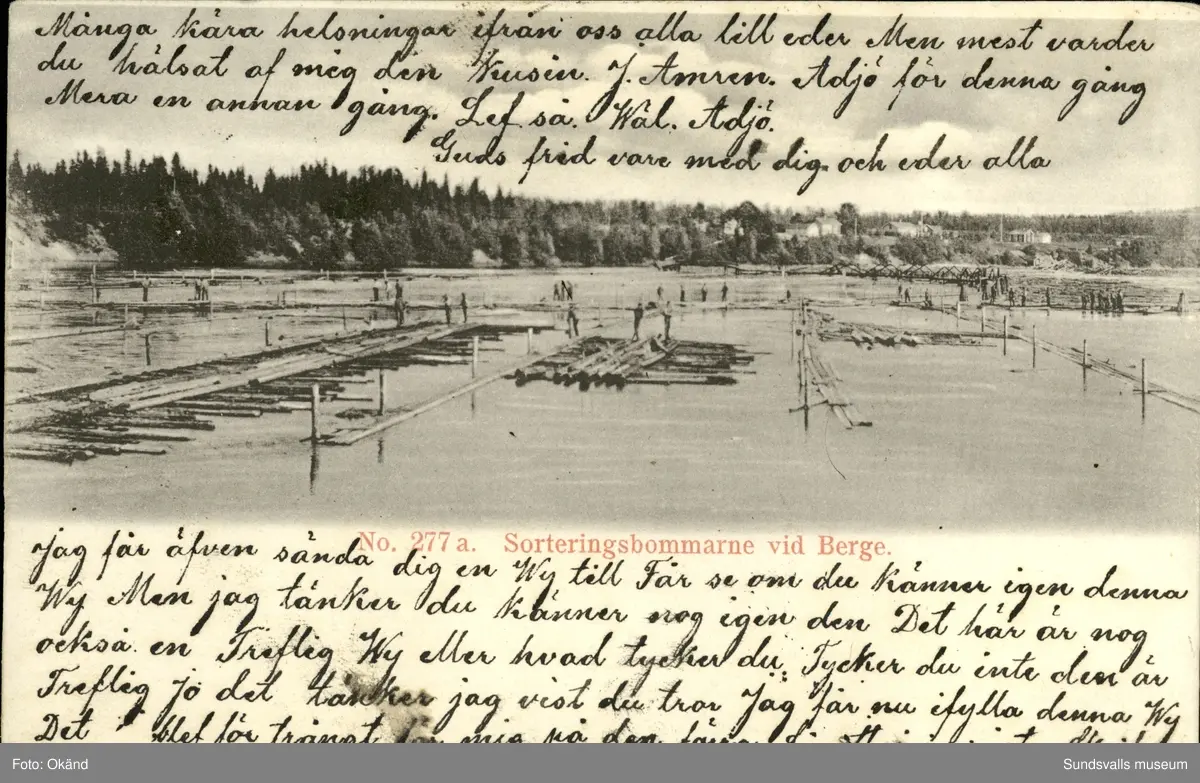 Många kära helsningar ifrån oss alla till eder Men mest varder
du hälsat af mig din Kusin. J. Amren. Adjö för denna gång
Mera en annan gång. Lef så. Wäl. Adjö.
Guds frid vare med dig och eder alla
No. 277 a. Sorteringsbommarne vid Berge.
Jag får äfven sända dig en Wy till Får se om du känner igen denna
Wy Men jag tänker du känner nog igen den Det här är nog
också en Treflig Wy eller hvad tycker du. Tycker du inte den är
Treflig jo det tänker jag vist du tror Jag får nu ifylla denna Wy
Det blef för trångt för mig på den
Foto: Okänd
Sundsvalls museum